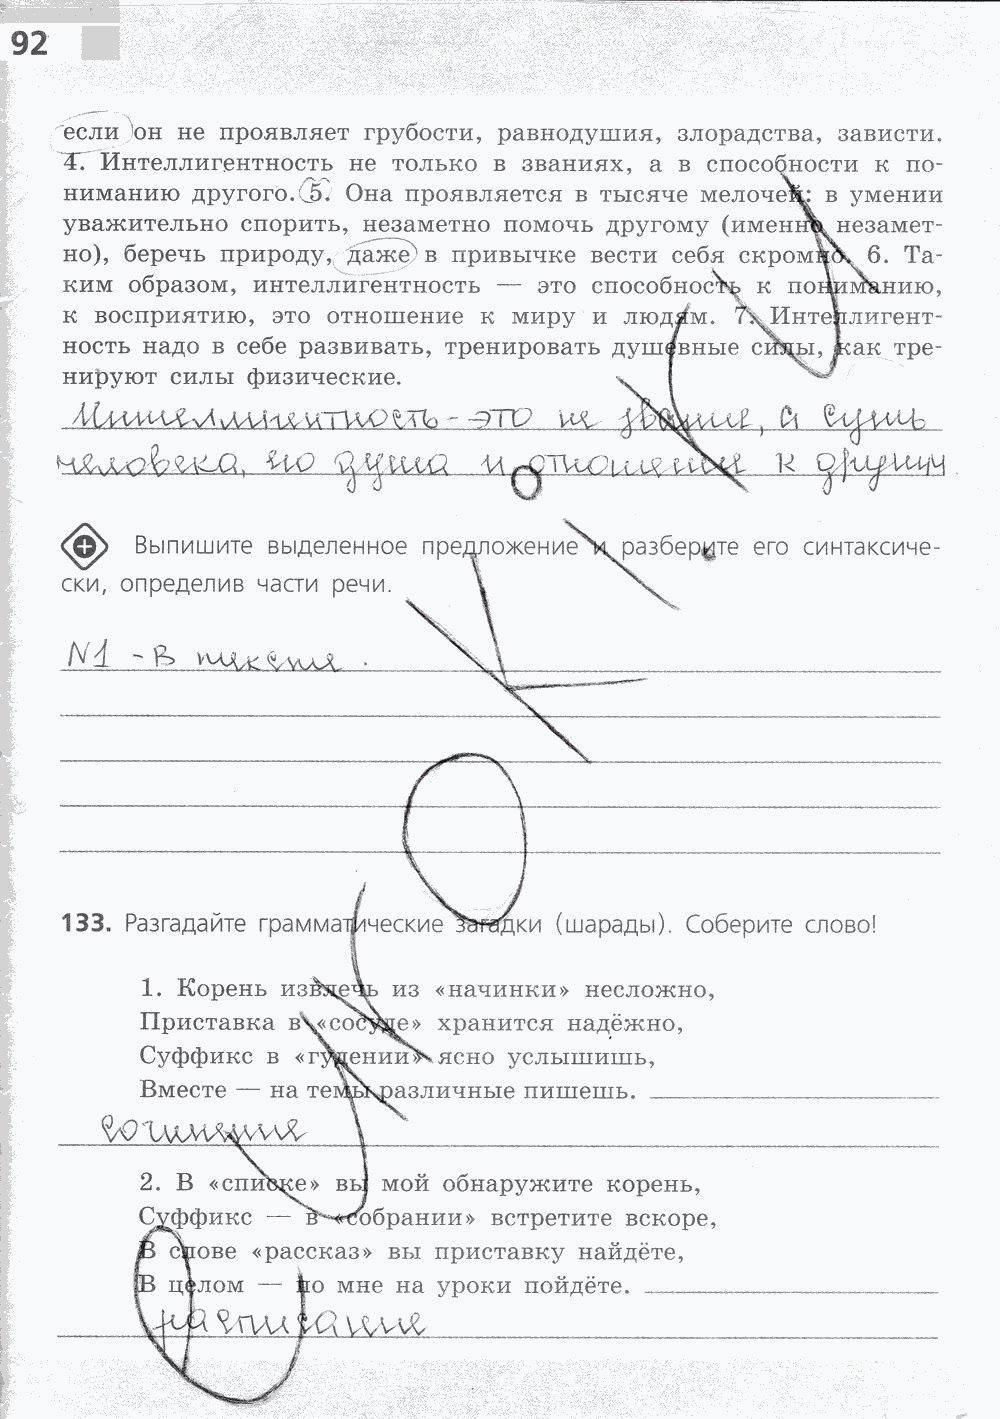 92
если он не проявляет грубости, равнодушия, злорадства, зависти.
4. Интеллигентность не только в званиях, а в способности к по-
ниманию другого. 5. Она проявляется в тысяче мелочей: в умении
уважительно спорить, незаметно помочь другому (именно незамет-
но), беречь природу, даже в привычке вести себя скромно. 6. Та-
ким образом, интеллигентность — это способность к пониманию,
к восприятию, это отношение к миру и людям. 7. Интеллигент-
ность надо в себе развивать, тренировать душевные силы, как тре-
нируют силы физические.
Интеллигентность - это не звание, а суть
человека, его душа и отношение к другим
Выпишите выделенное предложение и разберите его синтаксиче-
ски, определив части речи.
N1 - в тексте.
133. Разгадайте грамматические загадки (шарады). Соберите слово!
1. Корень извлечь из «начинки» несложно,
Приставка в «сосуде» хранится надёжно,
Суффикс в «гудении» ясно услышишь,
Вместе — на темы различные пишешь.
сочинение
2. В «списке» вы мой обнаружите корень,
Суффикс — в «собрании» встретите вскоре,
В слове «рассказ» вы приставку найдёте,
В целом — по мне на уроки пойдёте.
расписание